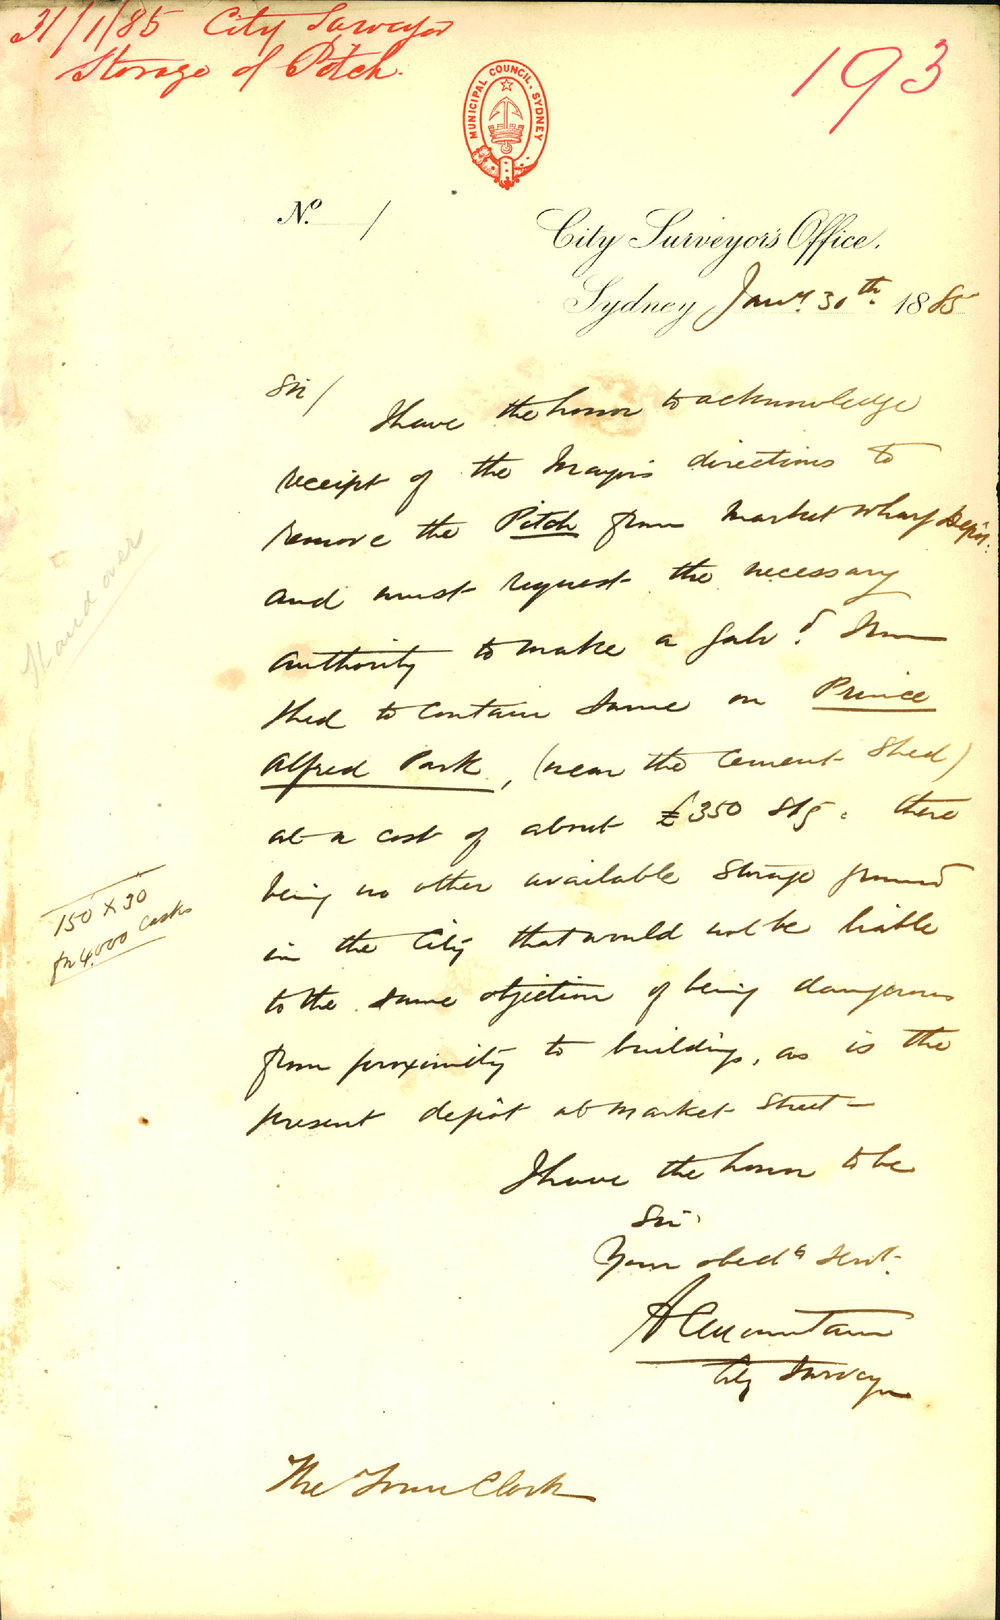 31/1/85 City Surveyor
Storage of Pitch.
193
MUNICIPAL COUNCIL. SYDNEY
No. /
City Surveyor's Office.
Sydney Jany. 30th. 1885
Sir/
I have the honor to acknowledge
receipt of the Mayor's directions to
remove the Pitch from Market Wharf Depôt.
and must request the necessary
authority to make a Galvd. Iron
Shed to contain same on Prince
Alfred Park, (near the Cement Shed)
at a cost of about £350 Stg. there
being no other available storage ground
in the City that would not be liable
to the same objection of being dangerous
from proximity to buildings, as is the
present depôt at Market Street—
Stand over
150 x 30
for 4,000 casks
I have the honor to be
Sir
Your obedt Servt.
A C Mountain
City Surveyor
The Town Clerk